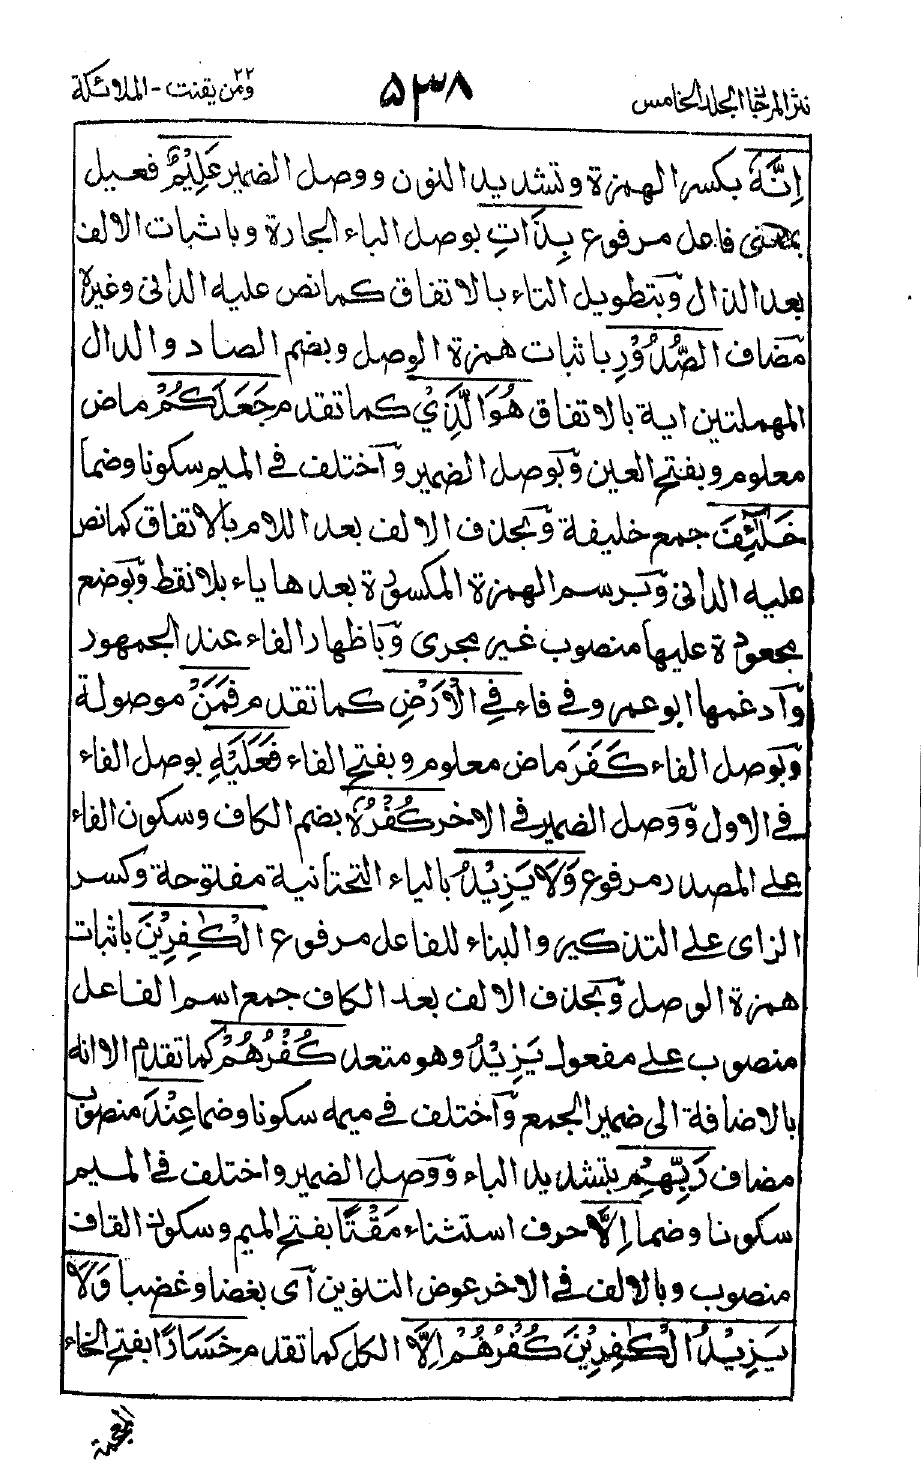 نثر المرجان المجلد الخامس ٥٣٨ ومن يقنت ٢٢ - الملائكة
اِنَّهٗ بكسر الهمزة وتشديد النون ووصل الضمير عَلِيْمٌ فعيل
بمعنى فاعل مرفوع بِذَاتِ بوصل الباء الجارة وباثبات الالف
بعد الذال وَبتطويل التاء بالاتفاق كما نص عليه الدانى وغيره
مضاف الصُّدُوْرِ باثبات همزة الوصل وبضم الصاد والدال
المهملتين اية بالاتفاق هُوَ الَّذِيْ كما تقدم جَعَلَكُمْ ماض
معلوم وبفتح العين وَبوصل الضمير وَاختلف فى الميم سكونا وضما
خَلٰٓئِفَ جمع خليفة وَبحذف الالف بعد اللام بالاتفاق كما نص
عليه الدانى وَبرسم الهمزة المكسورة بعدها ياء بلا نقط وَبوضع
مجعودة عليها منصوب غير مجرى وَباظهار الفاء عند الجمهور
وَادغمها ابو عمرو فى فاء فِي الْاَرْضِ كما تقدم فَمَنْ موصولة
وَبوصل الفاء كَفَرَ ماض معلوم وبفتح الفاء فَعَلَيْهِ بوصل الفاء
فى الاول وَوصل الضمير فى الاخر كُفْرُهٗ بضم الكاف وسكون الفاء
على المصدر مرفوع وَلَا يَزِيْدُ بالياء التحتانية مفتوحة وكسر
الزاى على التذكير والبناء للفاعل مرفوع الْكٰفِرِيْنَ باثبات
همزة الوصل وَبحذف الالف بعد الكاف جمع اسم الفاعل
منصوب على مفعول يَزِيْدُ وهو متعد كُفْرُهُمْ كما تقدم الا انه
بالاضافة الى ضمير الجمع وَاختلف فى ميمه سكونا وضما عِنْدَ منصوب
مضاف رَبِّهِمْ بتشديد الباء وَوصل الضمير واختلف فى الميم
سكونا وضما اِلَّا حرف استثناء مَقْتًا بفتح الميم وسكون القاف
منصوب وبالالف فى الاخر عوض التنوين اَى بغضا وغضبا وَلَا
يَزِيْدُ الْكٰفِرِيْنَ كُفْرُهُمْ اِلَّا الكل كما تقدم خَسَارًا بفتح الخاء
المعجمة